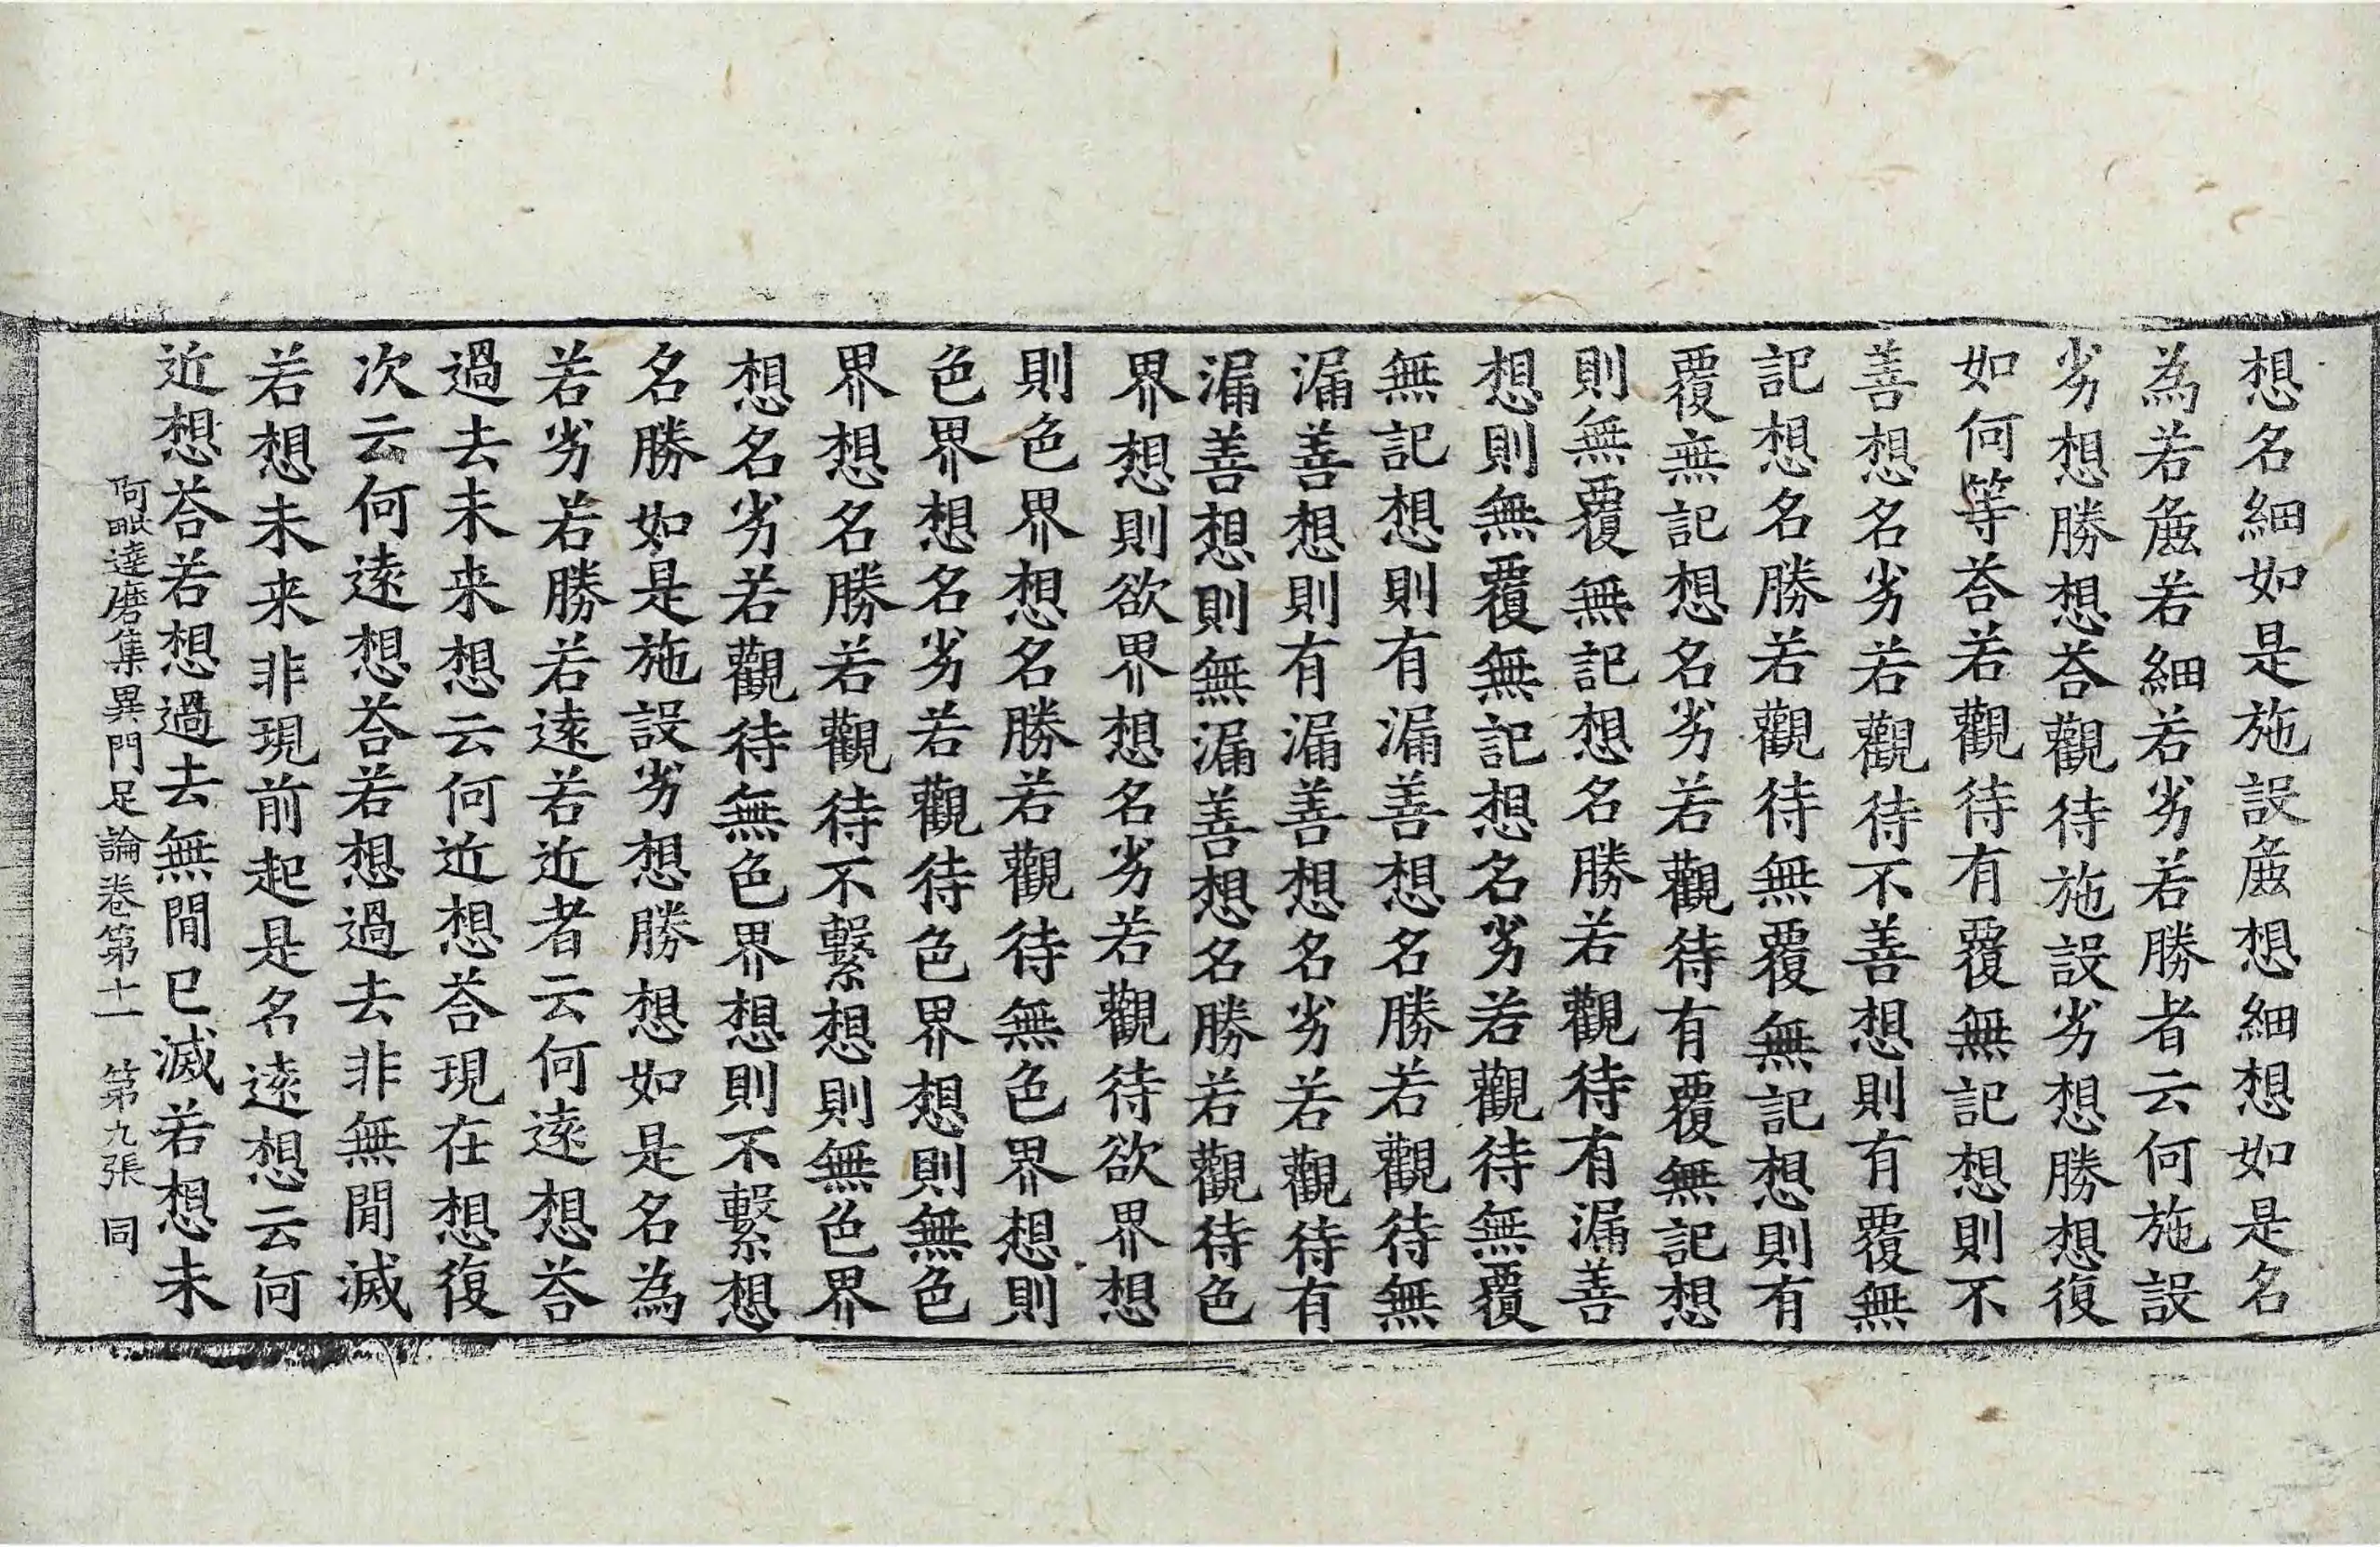 想名細如是施設麁想細想如是名
為若麁若細若劣若勝者云何施設
劣想勝想荅觀待施設劣想勝想復
如何等荅若觀待有覆無記想則不
善想名劣若觀待不善想則有覆無
記想名勝若觀待無覆無記想則有
覆無記想名劣若觀待有覆無記想
則無覆無記想名勝若觀待有漏善
想則無覆無記想名劣若觀待無覆
無記想則有漏善想名勝若觀待無
漏善想則有漏善想名劣若觀待有
漏善想則無漏善想名勝若觀待色
界想則欲界想名劣若觀待欲界想
則色界想名勝若觀待無色界想則
色界想名劣若觀待色界想則無色
界想名勝若觀待不繫想則無色界
想名劣若觀待無色界想則不繫想
名勝如是施設劣想勝想如是名為
若劣若勝若遠若近者云何遠想荅
過去未来想云何近想荅現在想復
次云何遠想荅若想過去非無間滅
若想未来非現前起是名遠想云何
近想荅若想過去無間已滅若想未
阿毗達磨集異門足論卷第十一 第九張 同